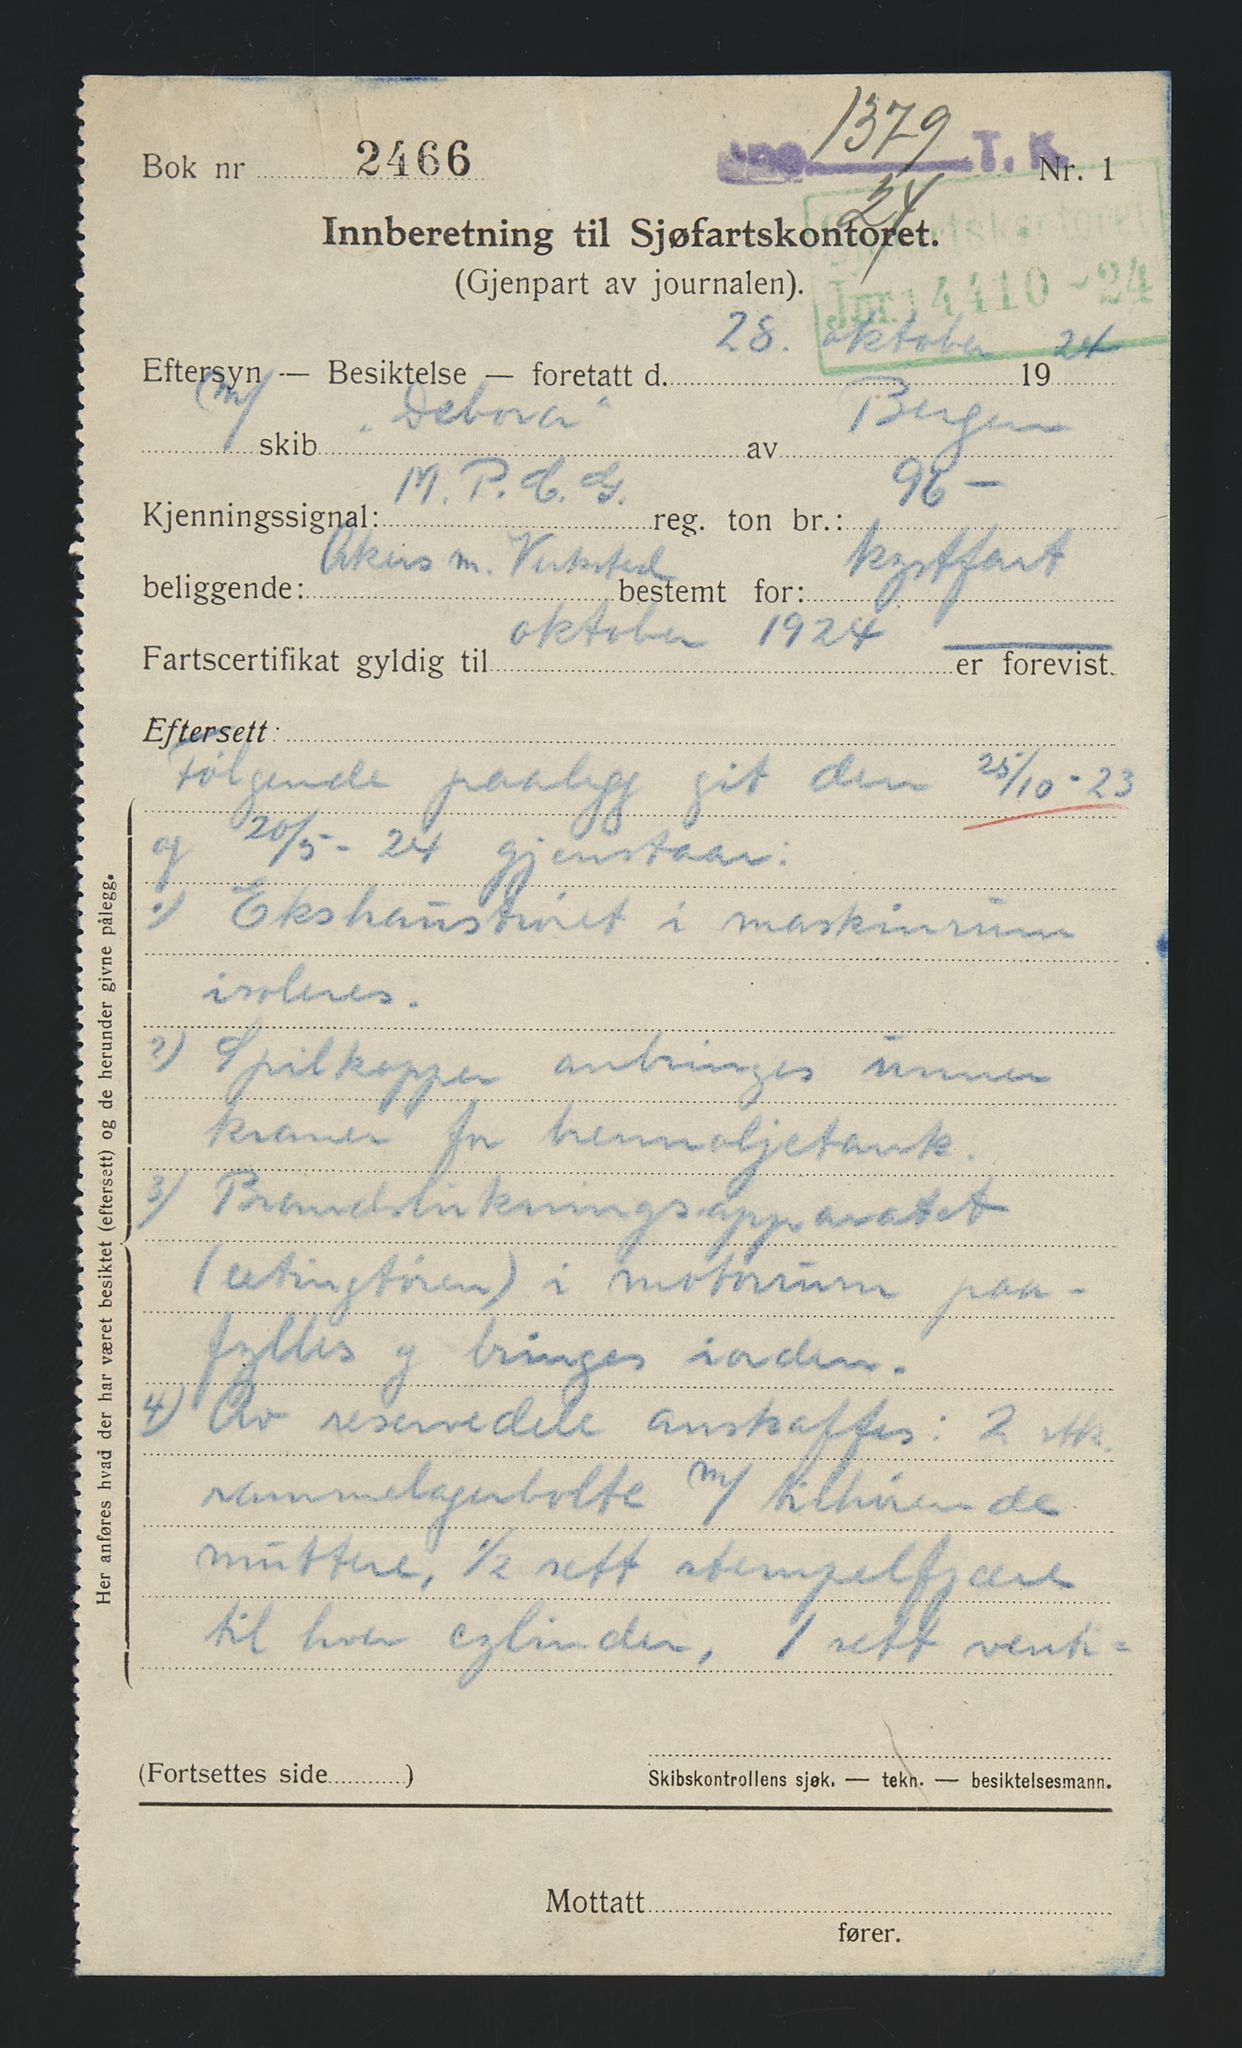 1379
24
Bok nr 2466 T. K. Nr. 1
Innberetning til Sjøfartskontoret.
(Gjenpart av journalen).
Sjøfartskontoret
Jnr. 4410 - 24
Eftersyn — Besiktelse — foretatt d. 28. oktober 1924
m/ skib „Debora“ av Bergen
Kjenningssignal: M. P. C. G. reg. ton br.: 96 —
beliggende: Akers m. Verksted bestemt for: kystfart
Fartscertifikat gyldig til oktober 1924 er forevist.
Eftersett:
Følgende paalegg git den 25/10 - 23
og 20/5 - 24 gjenstaar:
1) Ekshaustrøret i maskinrum
isoleres.
2) Spilkopper anbringes unner
kraner for brennoljetank.
3) Brandslukningsapparatet
i motorrum paa-
fylles og bringes iorden.
4) Av reservedele anskaffes: 2 stk.
rammelagerbolte m/ tilhørende
muttere, 1/2 sett stempelfjære
til hver cylinder, 1 sett venti-
Her anføres hvad der har været besiktet (eftersett) og de herunder givne pålegg.
(Fortsettes side )
Skibskontrollens sjøk. — tekn. — besiktelsesmann.
Mottatt
fører.